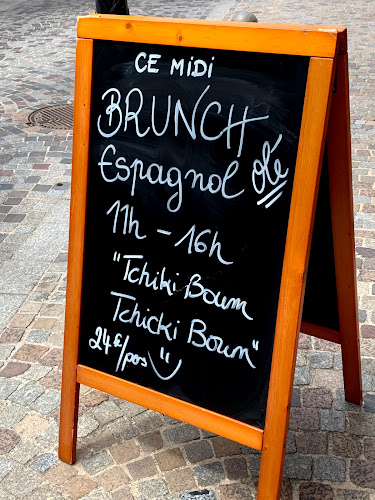 CE MIDI
BRUNCH
Espagnol olé
11h - 16h
"Tchiki Boum
Tchicki Boum"
24€/pers